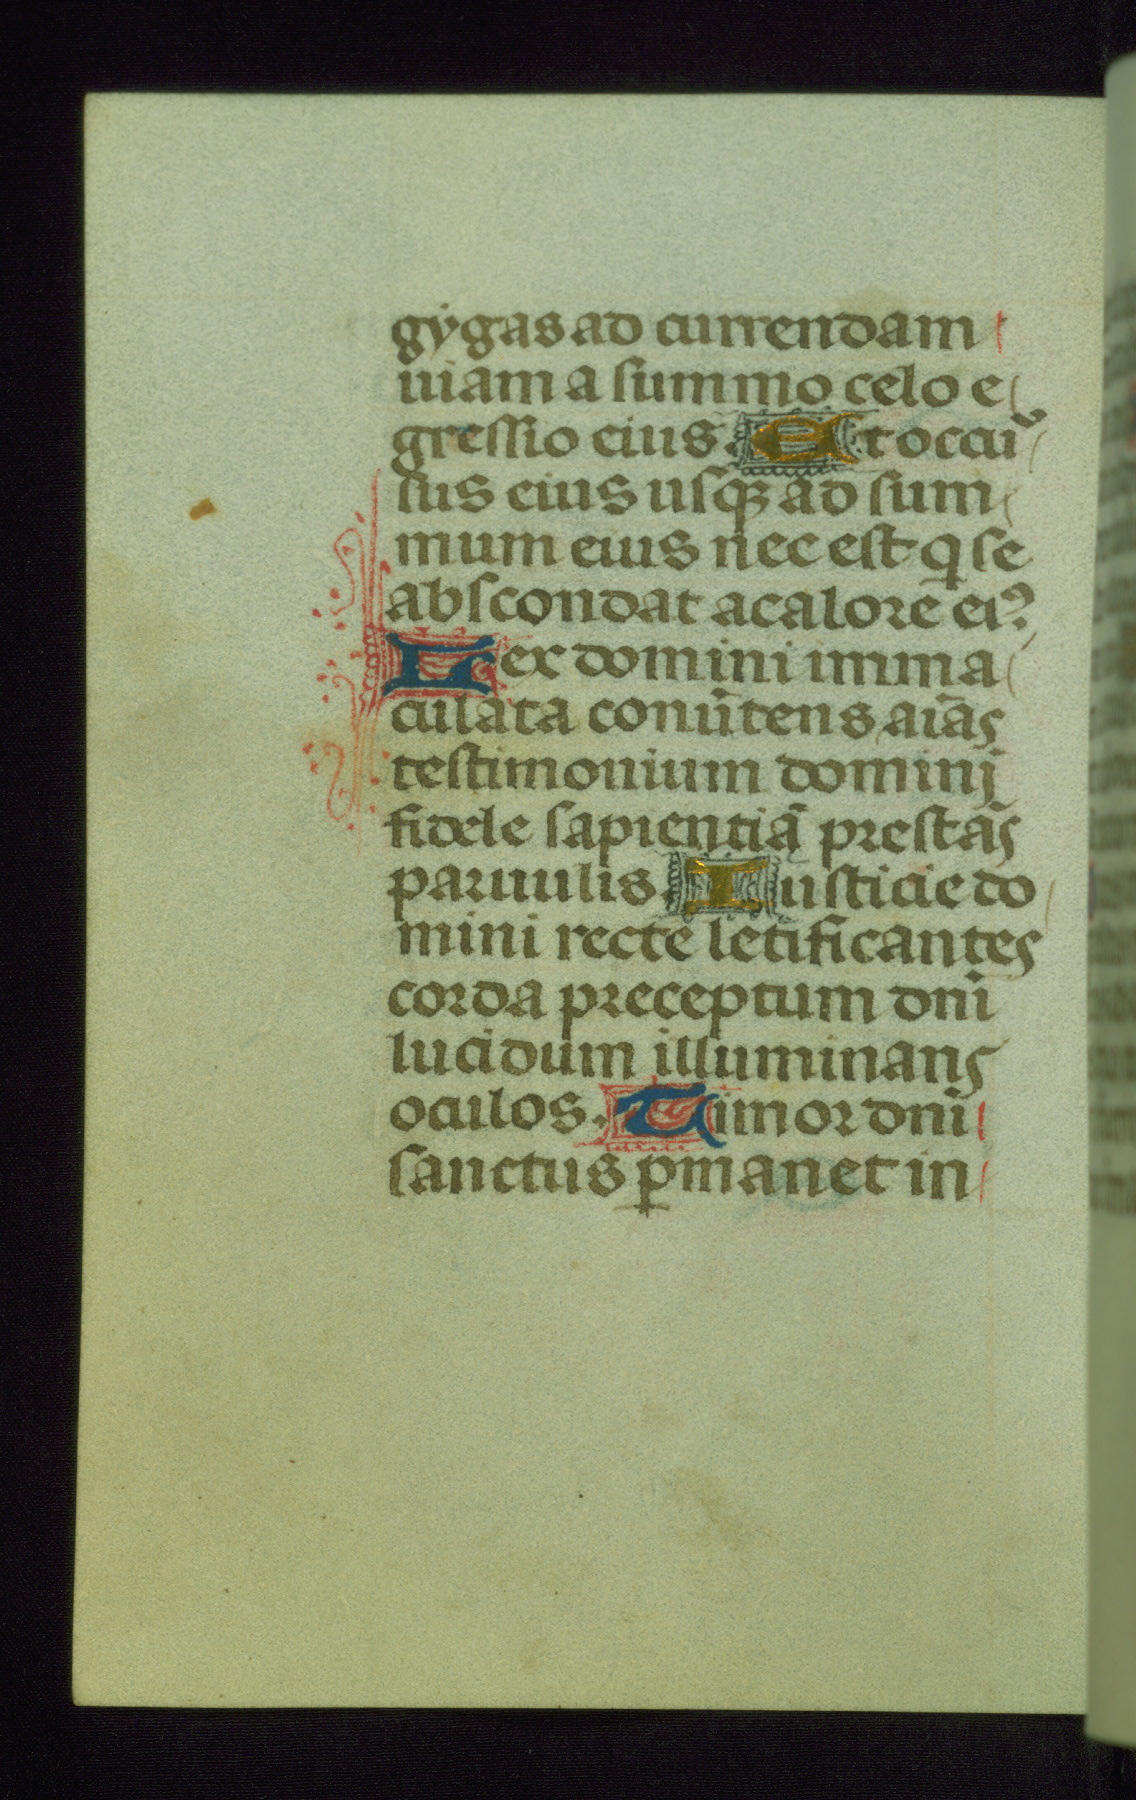 gẏgas ad currendam
uiam a summo celo e
gressio eius. Et occu᷒
sus eius usqꝫ ad sum
mum eius nec est q se
abscondat a calore ei᷒
Lex domini imma
culata conūtens aīas
testimonium domini
fidele sapientiā prestās
paruulis. Iusticie do
mini recte letificantes
corda preceptum dnī
lucidum illuminans
oculos. Timor dnī
sanctus ꝑmanet in